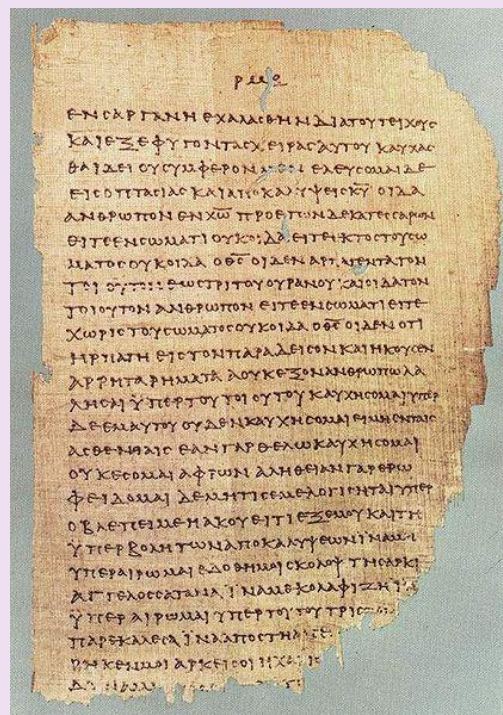 ΕΝ ΣΑΡΓΑΝΗ ΕΧΑΛΑΣΘΗΝ ΔΙΑ ΤΟΥ ΤΕΙΧΟΥΣ
ΚΑΙ ΕΞΕΦΥΓΟΝ ΤΑΣ ΧΕΙΡΑΣ ΑΥΤΟΥ ΚΑΥΧΑΣ
ΘΑΙ ΔΕΙ ΟΥ ΣΥΜΦΕΡΟΝ ΕΛΕΥΣΟΜΑΙ ΔΕ
ΕΙΣ ΟΠΤΑΣΙΑΣ ΚΑΙ ΑΠΟΚΑΛΥΨΕΙΣ ΚΥ ΟΙΔΑ
ΑΝΘΡΩΠΟΝ ΕΝ ΧΩ ΠΡΟ ΕΤΩΝ ΔΕΚΑΤΕΣΣΑΡΩΝ
ΕΙΤΕ ΕΝ ΣΩΜΑΤΙ ΟΥΚ ΟΙΔΑ ΕΙΤΕ ΕΚΤΟΣ ΤΟΥ ΣΩ
ΜΑΤΟΣ ΟΥΚ ΟΙΔΑ Ο ΘΣ ΟΙΔΕΝ ΑΡΠΑΓΕΝΤΑ ΤΟΝ
ΤΟΙΟΥΤΟΝ ΕΩΣ ΤΡΙΤΟΥ ΟΥΡΑΝΟΥ ΚΑΙ ΟΙΔΑ ΤΟΝ
ΤΟΙΟΥΤΟΝ ΑΝΘΡΩΠΟΝ ΕΙΤΕ ΕΝ ΣΩΜΑΤΙ ΕΙΤΕ
ΧΩΡΙΣ ΤΟΥ ΣΩΜΑΤΟΣ ΟΥΚ ΟΙΔΑ Ο ΘΣ ΟΙΔΕΝ ΟΤΙ
ΗΡΠΑΓΗ ΕΙΣ ΤΟΝ ΠΑΡΑΔΕΙΣΟΝ ΚΑΙ ΗΚΟΥΣΕΝ
ΑΡΡΗΤΑ ΡΗΜΑΤΑ Α ΟΥΚ ΕΞΟΝ ΑΝΘΡΩΠΩ ΛΑ
ΛΗΣΑΙ ΫΠΕΡ ΤΟΥ ΤΟΙΟΥΤΟΥ ΚΑΥΧΗΣΟΜΑΙ ΥΠΕΡ
ΔΕ ΕΜΑΥΤΟΥ ΟΥΔΕΝ ΚΑΥΧΗΣΟΜΑΙ ΕΙ ΜΗ ΕΝ ΤΑΙΣ
ΑΣΘΕΝΕΙΑΙΣ ΕΑΝ ΓΑΡ ΘΕΛΩ ΚΑΥΧΗΣΟΜΑΙ
ΟΥΚ ΕΣΟΜΑΙ ΑΦΡΩΝ ΑΛΗΘΕΙΑΝ ΓΑΡ ΕΡΩ
ΦΕΙΔΟΜΑΙ ΔΕ ΜΗ ΤΙΣ ΕΜΕ ΛΟΓΙΣΗΤΑΙ ΥΠΕΡ
Ο ΒΛΕΠΕΙ ΜΕ Η ΑΚΟΥΕΙ ΤΙ ΕΞ ΕΜΟΥ ΚΑΙ ΤΗ
ΫΠΕΡΒΟΛΗ ΤΩΝ ΑΠΟΚΑΛΥΨΕΩΝ ΪΝΑ ΜΗ
ΥΠΕΡΑΙΡΩΜΑΙ ΕΔΟΘΗ ΜΟΙ ΣΚΟΛΟΨ ΤΗ ΣΑΡΚΙ
ΑΓΓΕΛΟΣ ΣΑΤΑΝΑ ΪΝΑ ΜΕ ΚΟΛΑΦΙΖΗ ΪΝΑ
ΫΠΕΡΑΙΡΩΜΑΙ ΥΠΕΡ ΤΟΥΤΟΥ ΤΡΙΣ
ΠΑΡΕΚΑΛΕΣΑ ΪΝΑ ΑΠΟΣΤΗ
ΡΗΚΕΝ ΜΟΙ ΑΡΚΕΙ ΣΟΙ Η ΧΑΡΙΣ